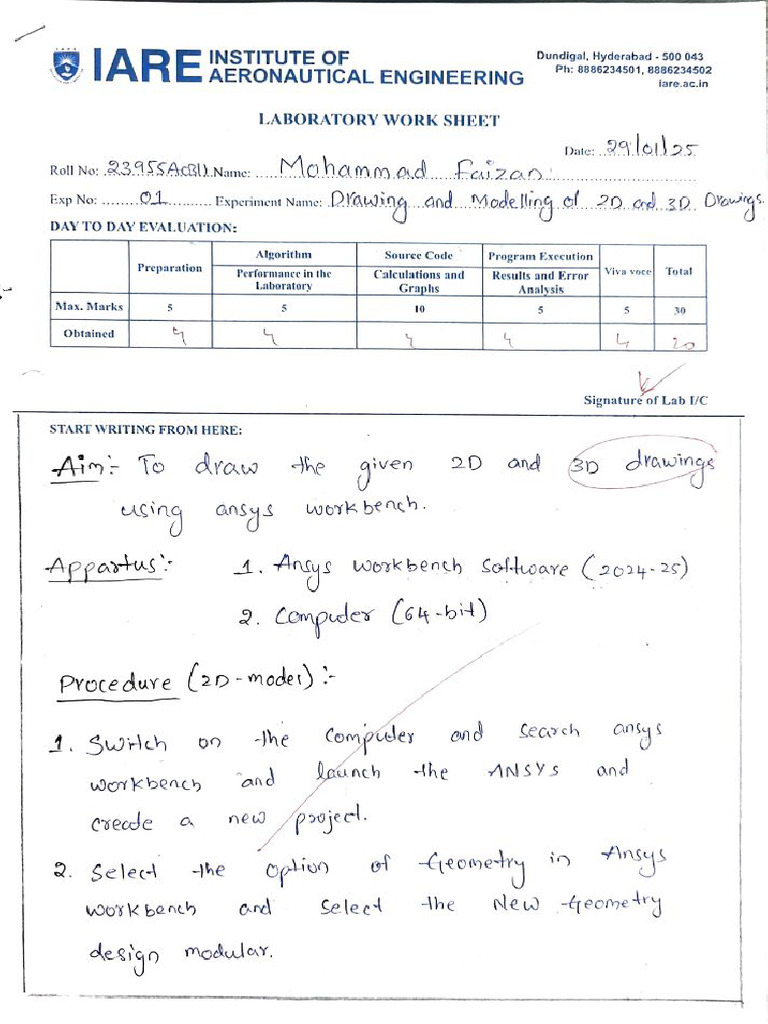 IARE INSTITUTE OF
AERONAUTICAL ENGINEERING
Dundigal, Hyderabad - 500 043
Ph: 8886234501, 8886234502
iare.ac.in
LABORATORY WORK SHEET
Date: 29/01/25
Roll No: 23955A Name: Mohammad Faizan
Exp No: 01 Experiment Name: Drawing and Modelling of 2D and 3D Drawings
DAY TO DAY EVALUATION:
Preparation Algorithm Source Code Program Execution Viva voce Total
Performance in the Laboratory Calculations and Graphs Results and Error Analysis
Max. Marks 5 5 10 5 5 30
Obtained 4 4 4 4 4 20
Signature of Lab I/C
START WRITING FROM HERE:
Aim:- To draw the given 2D and 3D drawings
using ansys workbench.
Appartus:- 1. Ansys workbench software (2024-25)
2. Computer (64-bit)
Procedure (2D-model):-
1. Switch on the computer and search ansys
workbench and launch the ANSYS and
create a new project.
2. Select the option of Geometry in Ansys
workbench and select the New Geometry
design modular.